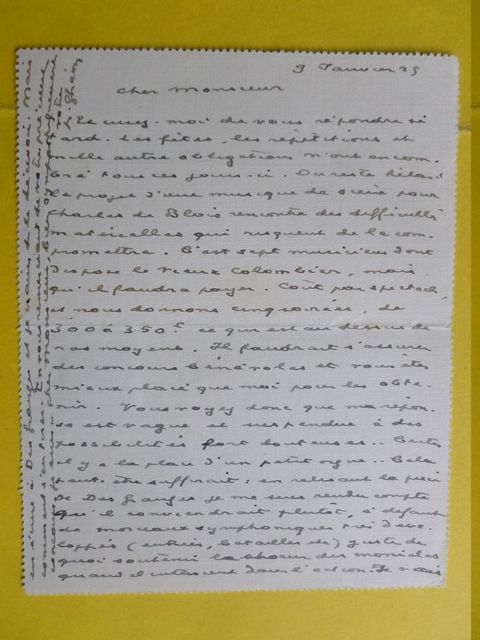 9 Janvier 25
Cher Monsieur
Excusez-moi de vous répondre si
tard. Les fêtes, les répétitions et
mille autre obligations m'ont encom-
bré tous ces jours-ci. Du reste hélas!
le projet d'une musique de scène pour
Charles de Blois rencontre des difficultés
matérielles qui risquent de la com-
promettre. C'est sept musiciens dont
dispose le Vieux Colombier, mais
qu'il faudra payer. Coût par spectacle,
et nous donnons cinq soirées, de
300 à 350 f. ce qui est au dessus de
nos moyens. Il faudrait s'assurer
des concours bénévoles et vous êtes
mieux placé que moi pour les obte-
nir. Vous voyez donc que ma répon-
se est vague et suspendue à des
possibilités fort douteuses.. Certes
il y a la place d'un petit orgue. Cela
peut-être suffirait: en relisant la pièce
de Des Granges je me suis rendu compte
qu'il conviendrait plutôt, à défaut
de morceaux symphoniques très déve-
loppés (entrées, batailles etc) juste de
quoi soutenir le choeur des moniales
quand il intervient dans l'action. Je vais
en écrire à Des Granges et je vais le décevoir. Mais
comment s'en tirer. En vous remerciant de votre précieux
concours je suis, cher Monsieur, bien sympathiquement
votre
H. Ghéon